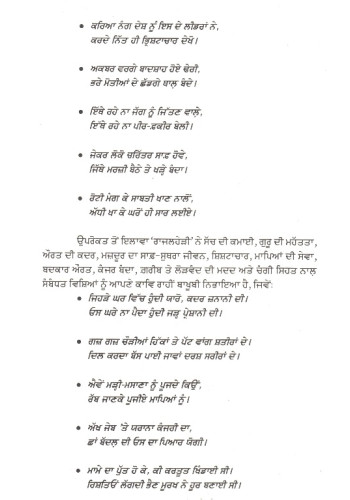 • ਕਰਿਆ ਨੰਗ ਦੇਸ਼ ਨੂੰ ਇਸ ਦੇ ਲੀਡਰਾਂ ਨੇ,
ਕਰਦੇ ਨਿੱਤ ਹੀ ਭ੍ਰਿਸ਼ਟਾਚਾਰ ਦੇਖੋ।
• ਅਕਬਰ ਵਰਗੇ ਬਾਦਸ਼ਾਹ ਹੋਏ ਢੇਰੀ,
ਭਰੇ ਮੋਤੀਆਂ ਦੇ ਛੱਡਗੇ ਥਾਲ ਬੰਦੇ।
• ਇੱਥੇ ਰਹੇ ਨਾ ਜੱਗ ਨੂੰ ਜਿੱਤਣ ਵਾਲੇ,
ਇੱਥੇ ਰਹੇ ਨਾ ਪੀਰ-ਫ਼ਕੀਰ ਬੇਲੀ।
• ਜੇਕਰ ਲੋਕੋ ਚਰਿੱਤਰ ਸਾਫ਼ ਹੋਵੇ,
ਜਿੱਥੇ ਮਰਜ਼ੀ ਬੈਠੇ ਤੇ ਖੜ੍ਹੇ ਬੰਦਾ।
• ਰੋਟੀ ਮੰਗ ਕੇ ਸਾਬਤੀ ਖਾਣ ਨਾਲੋਂ,
ਅੱਧੀ ਖਾ ਕੇ ਘਰੋਂ ਹੀ ਸਾਰ ਲਈਏ।
ਉਪਰੋਕਤ ਤੋਂ ਇਲਾਵਾ 'ਰਾਜਲਹੇੜੀ' ਨੇ ਸੱਚ ਦੀ ਕਮਾਈ, ਗੁਰੂ ਦੀ ਮਹੱਤਤਾ,
ਔਰਤ ਦੀ ਕਦਰ, ਮਜ਼ਦੂਰ ਦਾ ਸਾਫ਼-ਸੁਥਰਾ ਜੀਵਨ, ਸ਼ਿਸ਼ਟਾਚਾਰ, ਮਾਪਿਆਂ ਦੀ ਸੇਵਾ,
ਬਦਕਾਰ ਔਰਤ, ਕੰਜਰ ਬੰਦਾ, ਗਰੀਬ ਤੇ ਲੋੜਵੰਦ ਦੀ ਮਦਦ ਅਤੇ ਚੰਗੀ ਸਿਹਤ ਨਾਲ
ਸੰਬੰਧਤ ਵਿਸ਼ਿਆਂ ਨੂੰ ਆਪਣੇ ਕਾਵਿ ਰਾਹੀਂ ਬਾਖੂਬੀ ਨਿਭਾਇਆ ਹੈ, ਜਿਵੇਂ:
• ਜਿਹੜੇ ਘਰ ਵਿੱਚ ਹੁੰਦੀ ਯਾਰੋ, ਕਦਰ ਜ਼ਨਾਨੀ ਦੀ।
ਓਸ ਘਰੇ ਨਾ ਪੈਦਾ ਹੁੰਦੀ ਜੜ੍ਹ ਪ੍ਰੇਸ਼ਾਨੀ ਦੀ।
• ਗਜ਼ ਗਜ਼ ਚੌੜੀਆਂ ਹਿੱਕਾਂ ਤੇ ਪੱਟ ਵਾਂਗ ਸ਼ਤੀਰਾਂ ਦੇ।
ਦਿਲ ਕਰਦਾ ਬੱਸ ਪਾਈ ਜਾਵਾਂ ਦਰਸ਼ ਸਰੀਰਾਂ ਦੇ।
• ਐਵੇਂ ਮੜ੍ਹੀ-ਮਸਾਣਾ ਨੂੰ ਪੂਜਦੇ ਕਿਉਂ,
ਰੱਬ ਜਾਣਕੇ ਪੂਜੀਏ ਮਾਪਿਆਂ ਨੂੰ।
• ਅੱਖ ਜੇਬ 'ਤੇ ਯਰਾਨਾ ਕੰਜਰੀ ਦਾ,
ਛਾਂ ਬੱਦਲ ਦੀ ਓਸ ਦਾ ਪਿਆਰ ਯੋਗੀ।
• ਮਾਮੇ ਦਾ ਪੁੱਤ ਹੋ ਕੇ, ਕੀ ਕਰਤੂਤ ਖਿੰਡਾਈ ਸੀ।
ਰਿਸ਼ਤਿਓਂ ਲੱਗਦੀ ਭੈਣ ਮੂਰਖ ਨੇ ਹੂਰ ਬਣਾਈ ਸੀ।